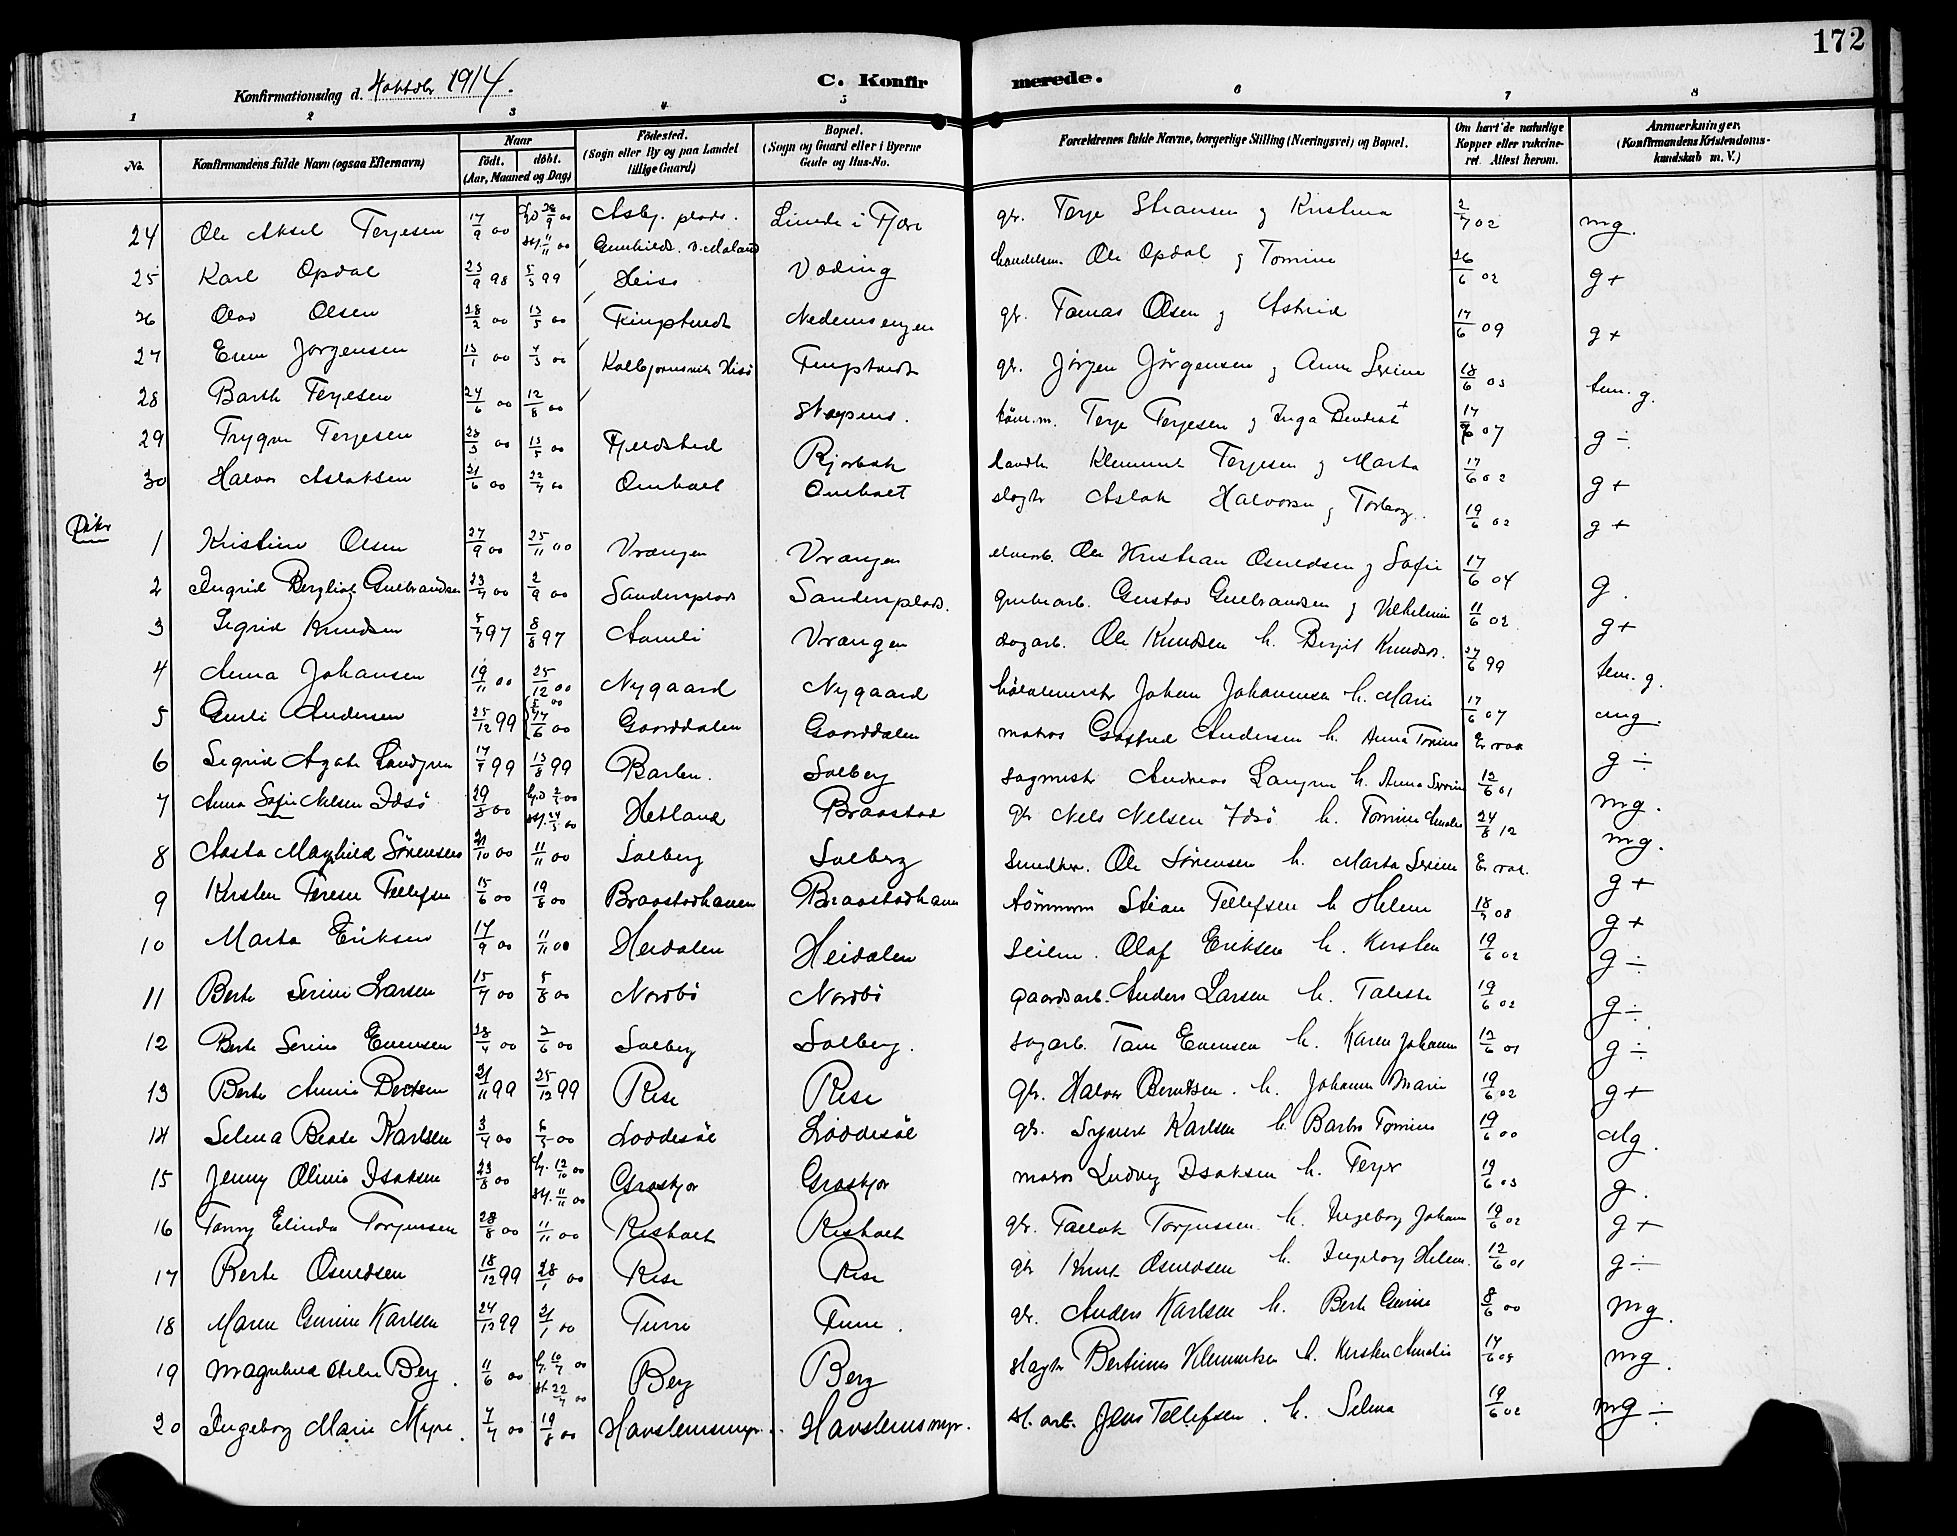 172
Konfirmationsdag d. 4 oktobr 1914.
C. Konfirmerede.
1 2 3 4 5 6 7 8
No.
Konfirmandens fulde Navn (ogsaa Efternavn)
Naar
født. døbt.
(Aar, Maaned og Dag)
Fødested.
(Sogn eller By og paa Landet
tillige Gaard)
Bopæl.
(Sogn og Gaard eller i Byerne
Gade og Hus-No.
Forældrenes fulde Navne, borgerlige Stilling (Næringsvei) og Bopæl.
Om havt de naturlige
Kopper eller vakcine-
ret. Attest herom.
Anmærkninger.
(Konfirmandens Kristendoms-
kundskab m. V.)
24 Ole Aksel Terjesen 17/9 00 hj.d 28/9 00 st. 11/11 00 Linde i Fjære gbr. Terje Stiansen og Kristina 2/7 02 mg.
25 Karl Opdal 23/9 98 5/3 99 Heiso Voding handelsm. Ole Opdal og Tomine 26/6 02 g+
26 Olav Olsen 28/2 00 13/5 00 Nedenesengen gb. Tomas Olsen og Astrid 17/6 09 g+
27 Even Jørgensen 13/1 00 4/3 00 Kolbjørnsvik Hisø gb. Jörgen Jörgensen og Anne Serine 18/6 03 tem. g.
28 Barth Terjesen 24/6 00 12/8 00 tøm.m. Terje Terjesen og Inga Bendikt + 17/6 07 g÷
29 Trygve Terjesen 28/3 00 13/5 00 Fjeldsted Rjorbak landh. Klemmet Terjesen og Marta 17/6 02 g+
30 Halvor Aslaksen 21/6 00 22/7 00 Omholt Omholt slagtr Aslak Halvorsen og Torborg. 19/6 02 g+
Piker
1 Kristine Olsen 27/9 00 25/11 00 Vrangen Vrangen Ole Kristian Osuldsen og Sofie 17/6 04 g.
2 Ingrid Bergliot Gulbrandsen 23/7 00 2/9 00 Sandenplads Sandenplads. grubearb. Gustav Gulbrandsen og Vilhelmine 11/6 02 g+
3 Sigrid Knudsen 5/7 97 8/8 97 Aamli Vrangen dagarb. Ole Knudsen h. Bergit Knudsdr. 27/6 99 tem. g.
4 Anna Johansen 19/11 00 25/12 00 Nygaard Nygaard Johan Johannesen h. Marie 17/6 07 mg.
5 Gunli Andersen 25/12 99 17/6 00 Gaarddalen Gaarddalen matros Gotfred Andersen h. Anna Tomine Er vac g÷
6 Sigrid Agate Landgren 17/7 99 13/8 99 Barlen. Solberg sagmestr Andreas Langren h. Anna Serine 12/6 01 mg.
7 Anna Sofie Nelsen Idsö 29/3 00 hj.d 2/5 00 st. 24/5 00 Hetland Braastad gb Nels Nelsen Idsö h. Tomine Amalie 24/8 12 mg.
8 Aasta Maghild Sörensen 21/10 00 11/11 00 Solberg Solberg Smedkr. Ole Sörensen h. Marta Serine Er vac. g+
9 Kirsten Terese Tellefsen 15/6 00 19/8 00 Braastadhaven Braastadhavn tömmerm Stian Tellefsen h Helene 18/7 08 g+
10 Marta Eriksen 17/9 00 11/11 00 Heidalen Heidalen Seilm. Olaf Eriksen h. Kirsten 19/6 02 g÷
11 Berte Serine Larsen 15/7 00 5/8 00 Nordbö Nordbö gaardsarb. Anders Larsen h. Talette 19/6 02 g÷
12 Berte Serine Evensen 28/4 00 2/6 00 Solberg Solberg. sagarb. Tom Evensen h. Karen Johanne 12/6 01 g÷
13 Berte Annie Berntsen 21/11 99 25/12 99 Rise Rise gb. Halvor Berntsen. h. Johanne Marie 19/6 02 g+
14 Selma Beate Karlsen 3/4 00 6/5 00 Løddesøl Løddesøl gb. Syvert Karlsen h. Barbro Tomine 19/6 00 mg.
15 Jenny Olivia Isaksen 23/8 00 hj. 12/10 00 st. 11/11 00 Graskjær Graskjær matros Ludvig Isaksen h. Terje 19/6 03 g.
16 Tanny Elinda Torjussen 28/8 00 11/11 00 Risholt Risholt gb. Tallak Torjussen h. Ingeborg Johanne 19/6 02 g+
17 Berte Osuldsen 18/12 99 28/1 00 Rise Rise gb Knut Osuldsen h. Ingeborg Helene. 12/6 01 g÷
18 Maren Gurine Karlsen 24/12 99 21/1 00 Furre Furre. gb. Anders Karlsen h. Berte Gurine 8/6 00 mg.
19 Magnhild Berg. 11/6 00 hj. 10/7 00 st. 22/7 00 Berg Berg slagtr Bertinius Klemmetsen h. Kirsten Amalie 17/6 03 mg.
20 Ingeborg Marie Myre. 7/7 00 19/8 00 Havstensmyr. Havstensmyr. st. arb. Jens Tellefsen. h. Selma 19/6 02 mg÷